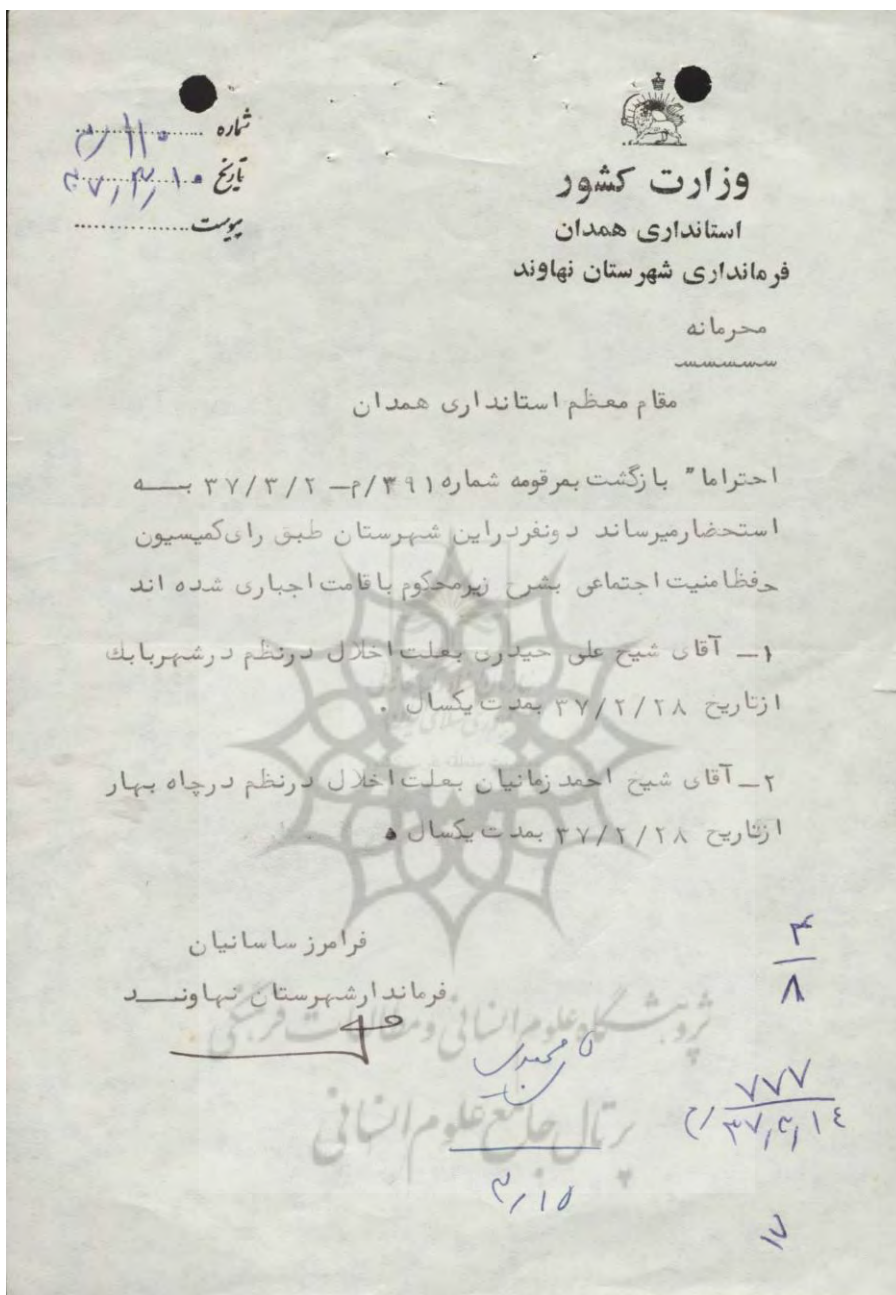 وزارت کشور
استانداری همدان
فرمانداری شهرستان نهاوند
شماره ۱۱۰/م
تاریخ ۳۷٫۳٫۱۰
پیوست
محرمانه
مقام معظم استانداری همدان
احتراما" بازگشت بمرقومه شماره ۳۹۱/م – ۳۷/۳/۲ بـــه
استحضارمیرساند دونفردراین شهرستان طبق رای کمیسیون
حفظ امنیت اجتماعی بشرح زیرمحکوم باقامت اجباری شده اند
۱ــ آقای شیخ علی حیدری بعلت اخلال درنظم درشهربابک
ازتاریخ ۳۷/۲/۲۸ بمدت یکسال .
۲ــ آقای شیخ احمد زمانیان بعلت اخلال درنظم درچاه بهار
ازتاریخ ۳۷/۲/۲۸ بمدت یکسال .
فرامرز ساسانیان
فرماندارشهرستان نهاونــــد
۴
۸
۷۷۷
۳۷٫۳٫۱۴
۳٫۱۵
۱۷
پژوهشگاه علوم انسانی و مطالعات فرهنگی
پرتال جامع علوم انسانی